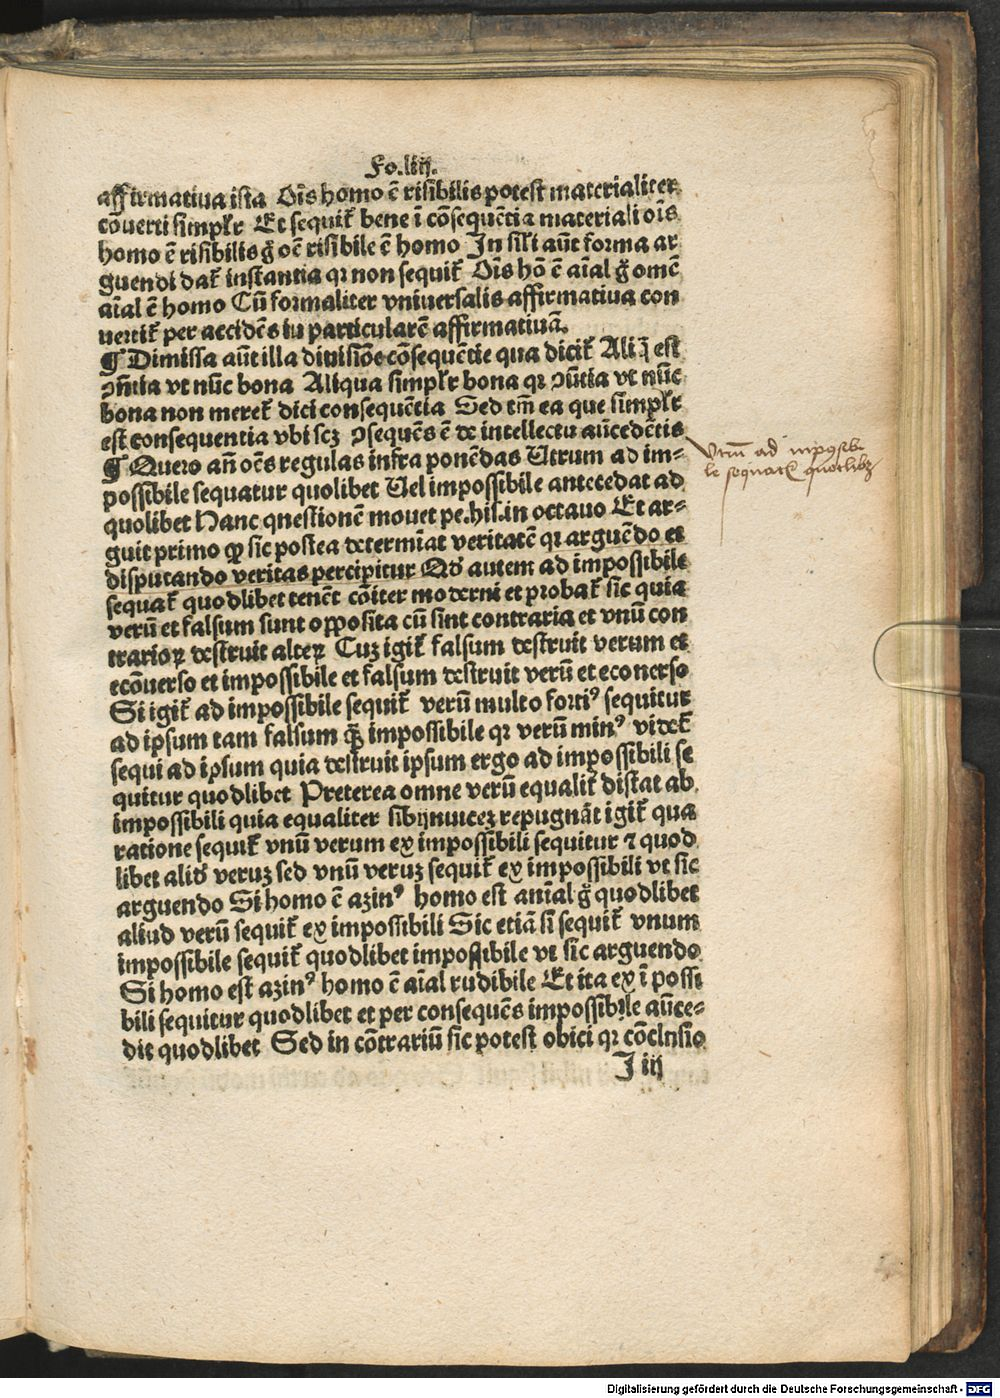 Fo.liij.
affirmatiua ista Oīs homo ē risibilis potest materialiter
cōuerti simpłr Et sequiť bene ī cōsequētia materiali oīs
homo ē risibilis ḡ oē risibile ē homo In sīli aūt forma ar
guendi dať instantia qꝛ non sequiť Oīs hō ē aīal ḡ omē
aīal ē homo Cū formaliter vniuersalis affirmatiua con
uertiť per accidēs in particularē affirmatiuā.
¶ Dimissa aūt illa diuisiōe cōsequētie qua diciť Aliq̄ est
ꝯn̄tia vt nūc bona Aliqua simpłr bona qꝛ ꝯn̄tia vt nūc
bona non mereť dici consequētia Sed tm̄ ea que simpłr
est consequentia vbi scꝫ ꝯsequēs ē de intellectu an̄cedētis
¶ Quero an̄ oēs regulas infra ponēdas Utrum ad im⸗
possibile sequatur quolibet Uel impossibile antecedat ad
quolibet Hanc qnestionē mouet pe.his.in octauo Et ar⸗
guit primo ꝙ sic postea determīat veritatē qꝛ arguēdo et
disputando veritas percipitur Qď autem ad impossibile
sequať quodlibet tenēt cōiter moderni et probať sic quia
verū et falsum sunt opposita cū sint contraria et vnū con
trarioꝝ destruit alteꝝ Cuꝫ igiť falsum destruit verum et
ecōuerso et impossibile et falsum destruit verū et econerso
Si igiť ad impossibile sequiť verū multo fortiꝰ sequitur
ad ipsum tam falsum q̄ꝫ impossibile qꝛ verū minꝰ videť
sequi ad ipsum quia destruit ipsum ergo ad impossibili se
quitur quodlibet Preterea omne verū equaliť distat ab
impossibili quia equaliter sibijnuceꝫ repugnāt igiť qua
ratione sequiť vnū verum ex impossibili sequitur ⁊ quod
libet aliď veruꝫ sed vnū veruꝫ sequiť ex impossibili vt sic
arguendo Si homo ē azinꝰ homo est anīal ḡ quodlibet
aliud verū sequiť ex impossibili Sic etiā si sequiť vnum
impossibile sequiť quodlibet impossibile vt sic arguendo
Si homo est azinꝰ homo ē aīal rudibile Et ita ex ī possi
bili sequitur quodlibet et per consequēs impossibile an̄ce⸗
dit quodlibet Sed in cōtrariū sic potest obici qꝛ cōclnsio
J iij
Vtrū ad inpossibi
le sequatᷣ quotlibꝫ
Digitalisierung gefördert durch die Deutsche Forschungsgemeinschaft - DFG